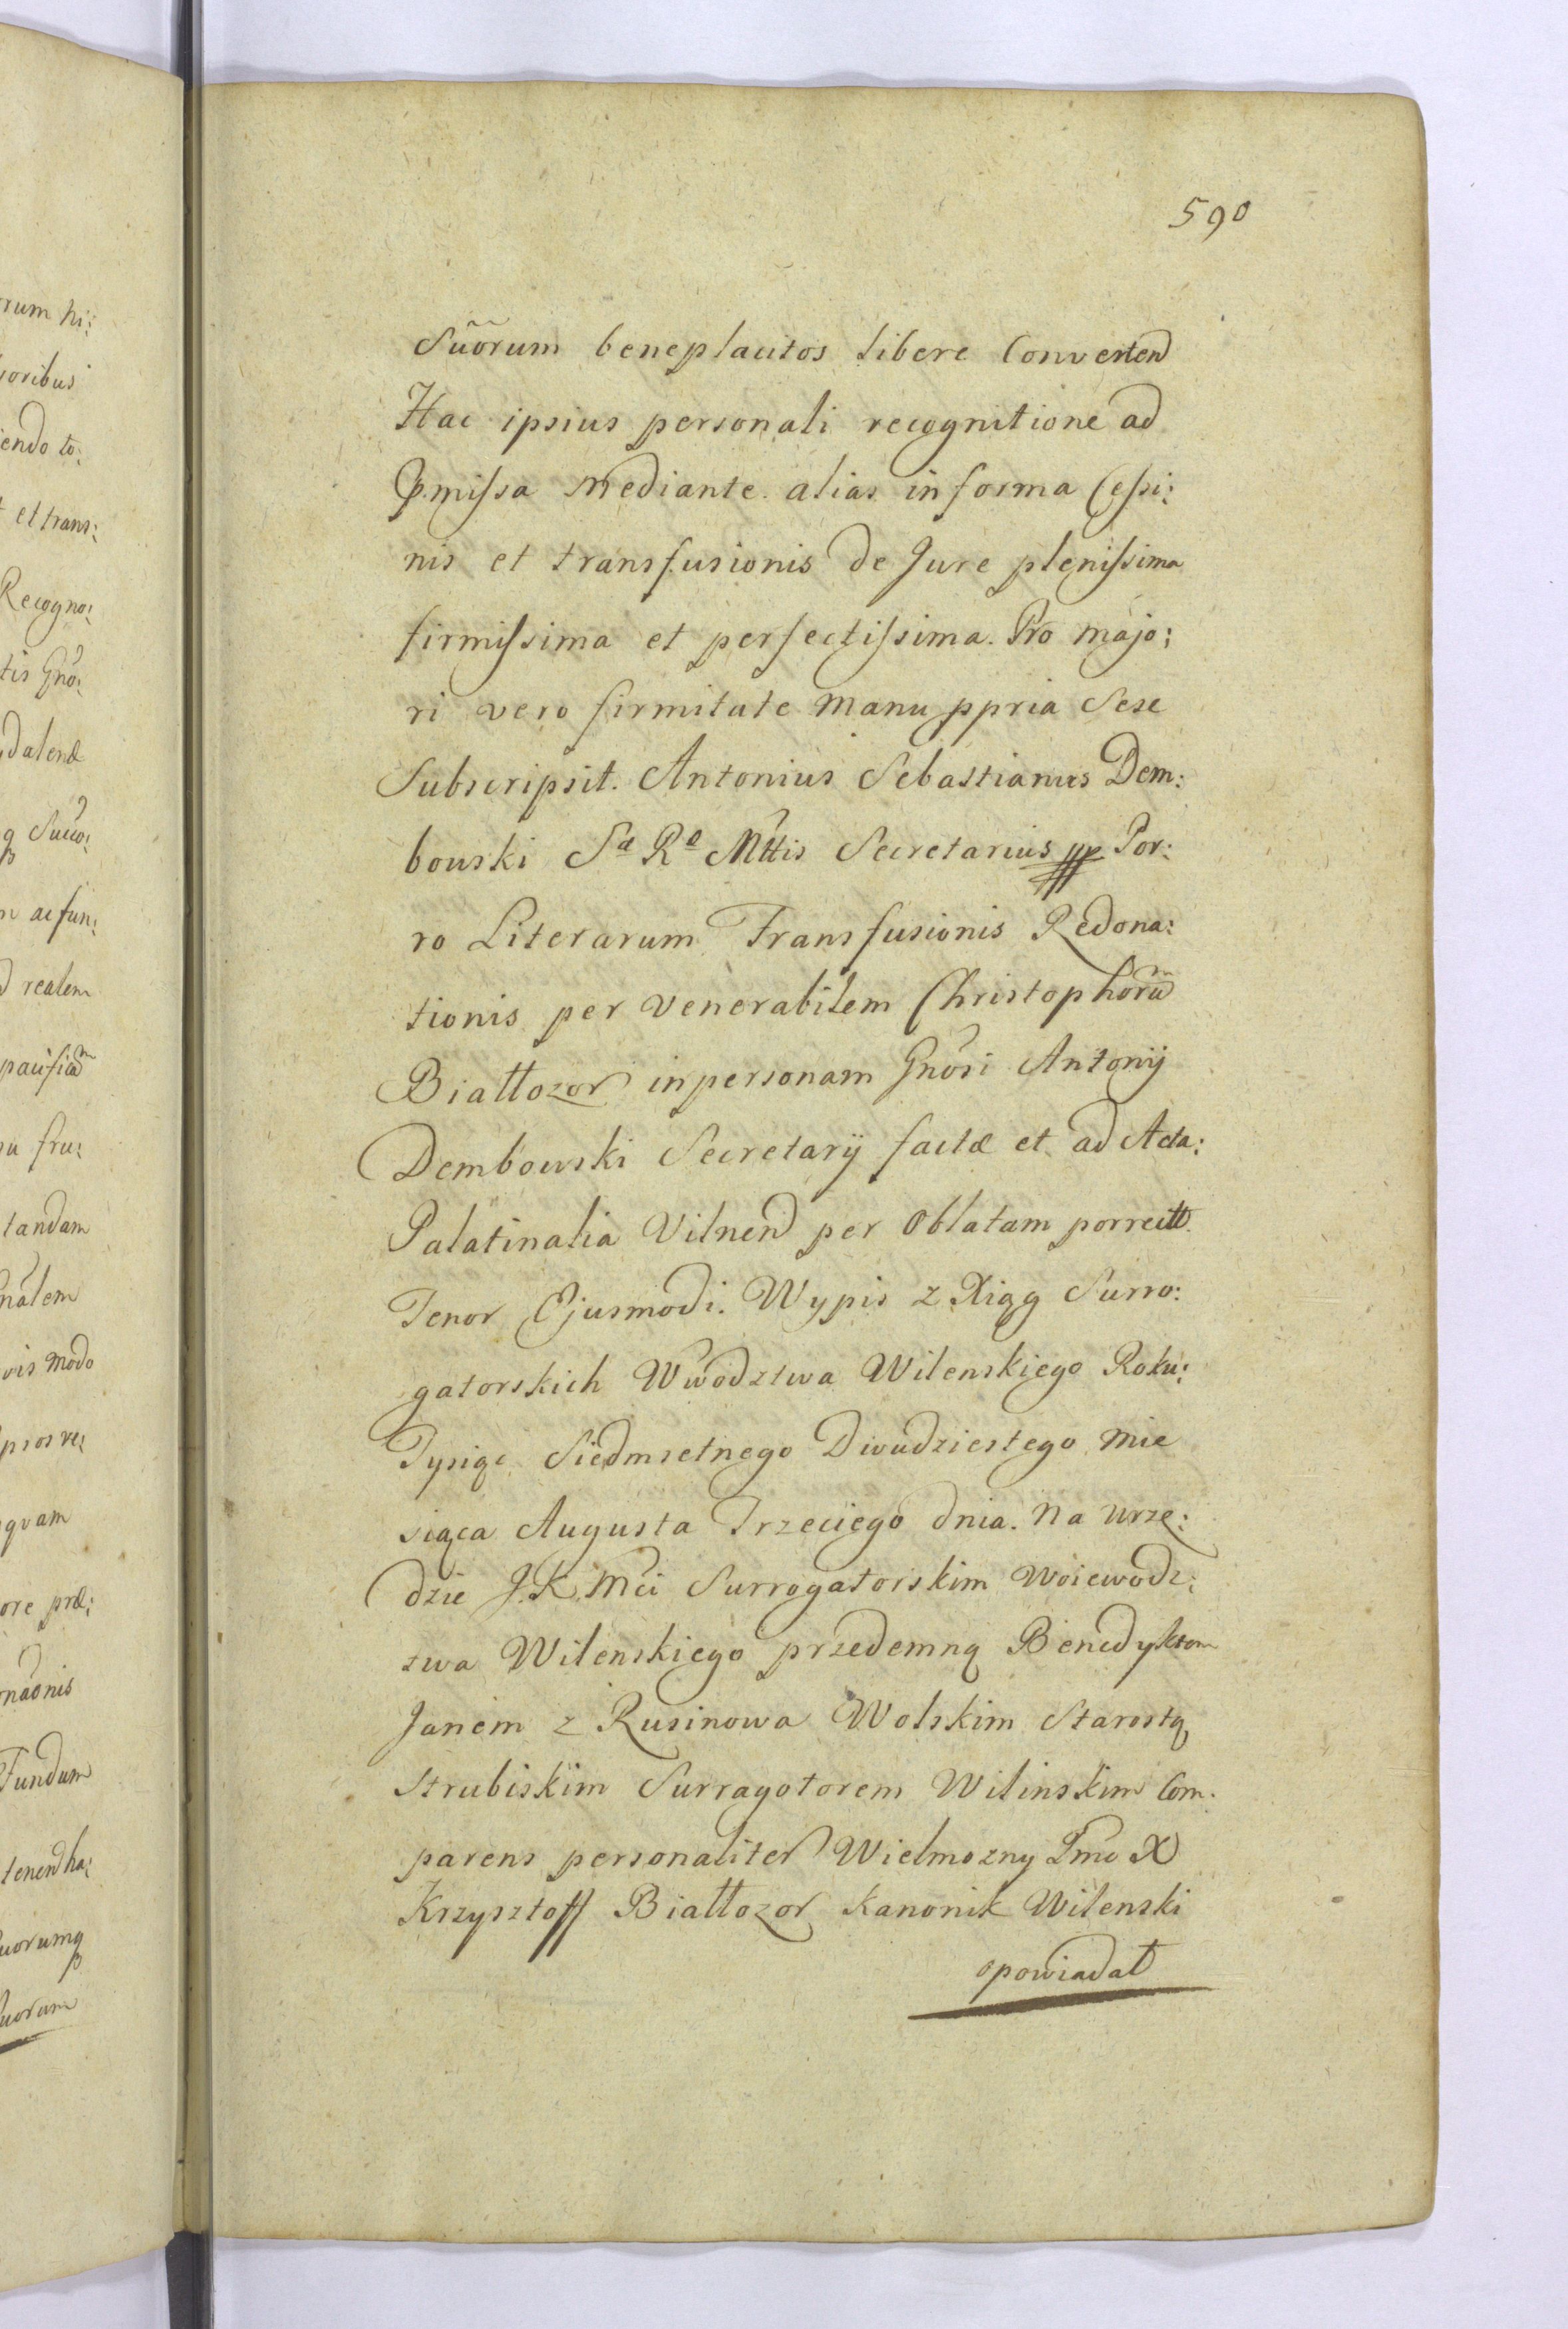 590
Suõrum beneplacitos libere Converten̄d
Hac ipsius personali recognitione ad
P.missa mediante. alias in forma Cessi:
nis et transfusionis de Jure plenissima
firmissima et perfectissima. Pro majo:
ri vero firmitate manu ppria Sese
Subscripsit. Antonius Sebastianus Dem:
bowski Sa Re Mttis Secretarius mp Por:
ro Literarum Transfusionis Redona:
tionis per Venerabilem Christophorũ
Białłozor in personam Gnosi Antonij
Dembowski Secretarij factæ et ad Acta:
Palatinalia Vilnen̄d per Oblatam porrectt.
Tenor Ejusmodi. Wypis z Xiąg Surro:
gatorskich Wwodztwa Wilenskiego Roku:
Tysiąc Siedmsetnego Dwudziestego mie
siąca Augusta Trzeciego dnia. Na Urzę:
dzie J.K. Mći Surrogatorskim Woiewodz:
twa Wilenskiego przedemną Benedyktem
Janem z Rusinowa Wolskim Starostą
Strubiskim Surragotorem Wilinskim Com:
parens personaliter Wielmozny Jmć X
Krzysztoff Białłozor Kanonik Wilenski
opowiadał
rum hi:
soribus
iendo to:
et trans:
Recogno:
tis Gno:
gdalenæ
q Succo:
m ac fun:
d realem
pacificã
fru:
tandam
nãlem
vis modo
psos ve:
quam
ore præ:
nãonis
Fundum
tenend ha:
uorumq
uorum